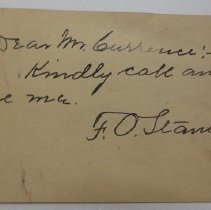 Dear Mr. Currence:-
Kindly call an
e me.
F. O. Stan